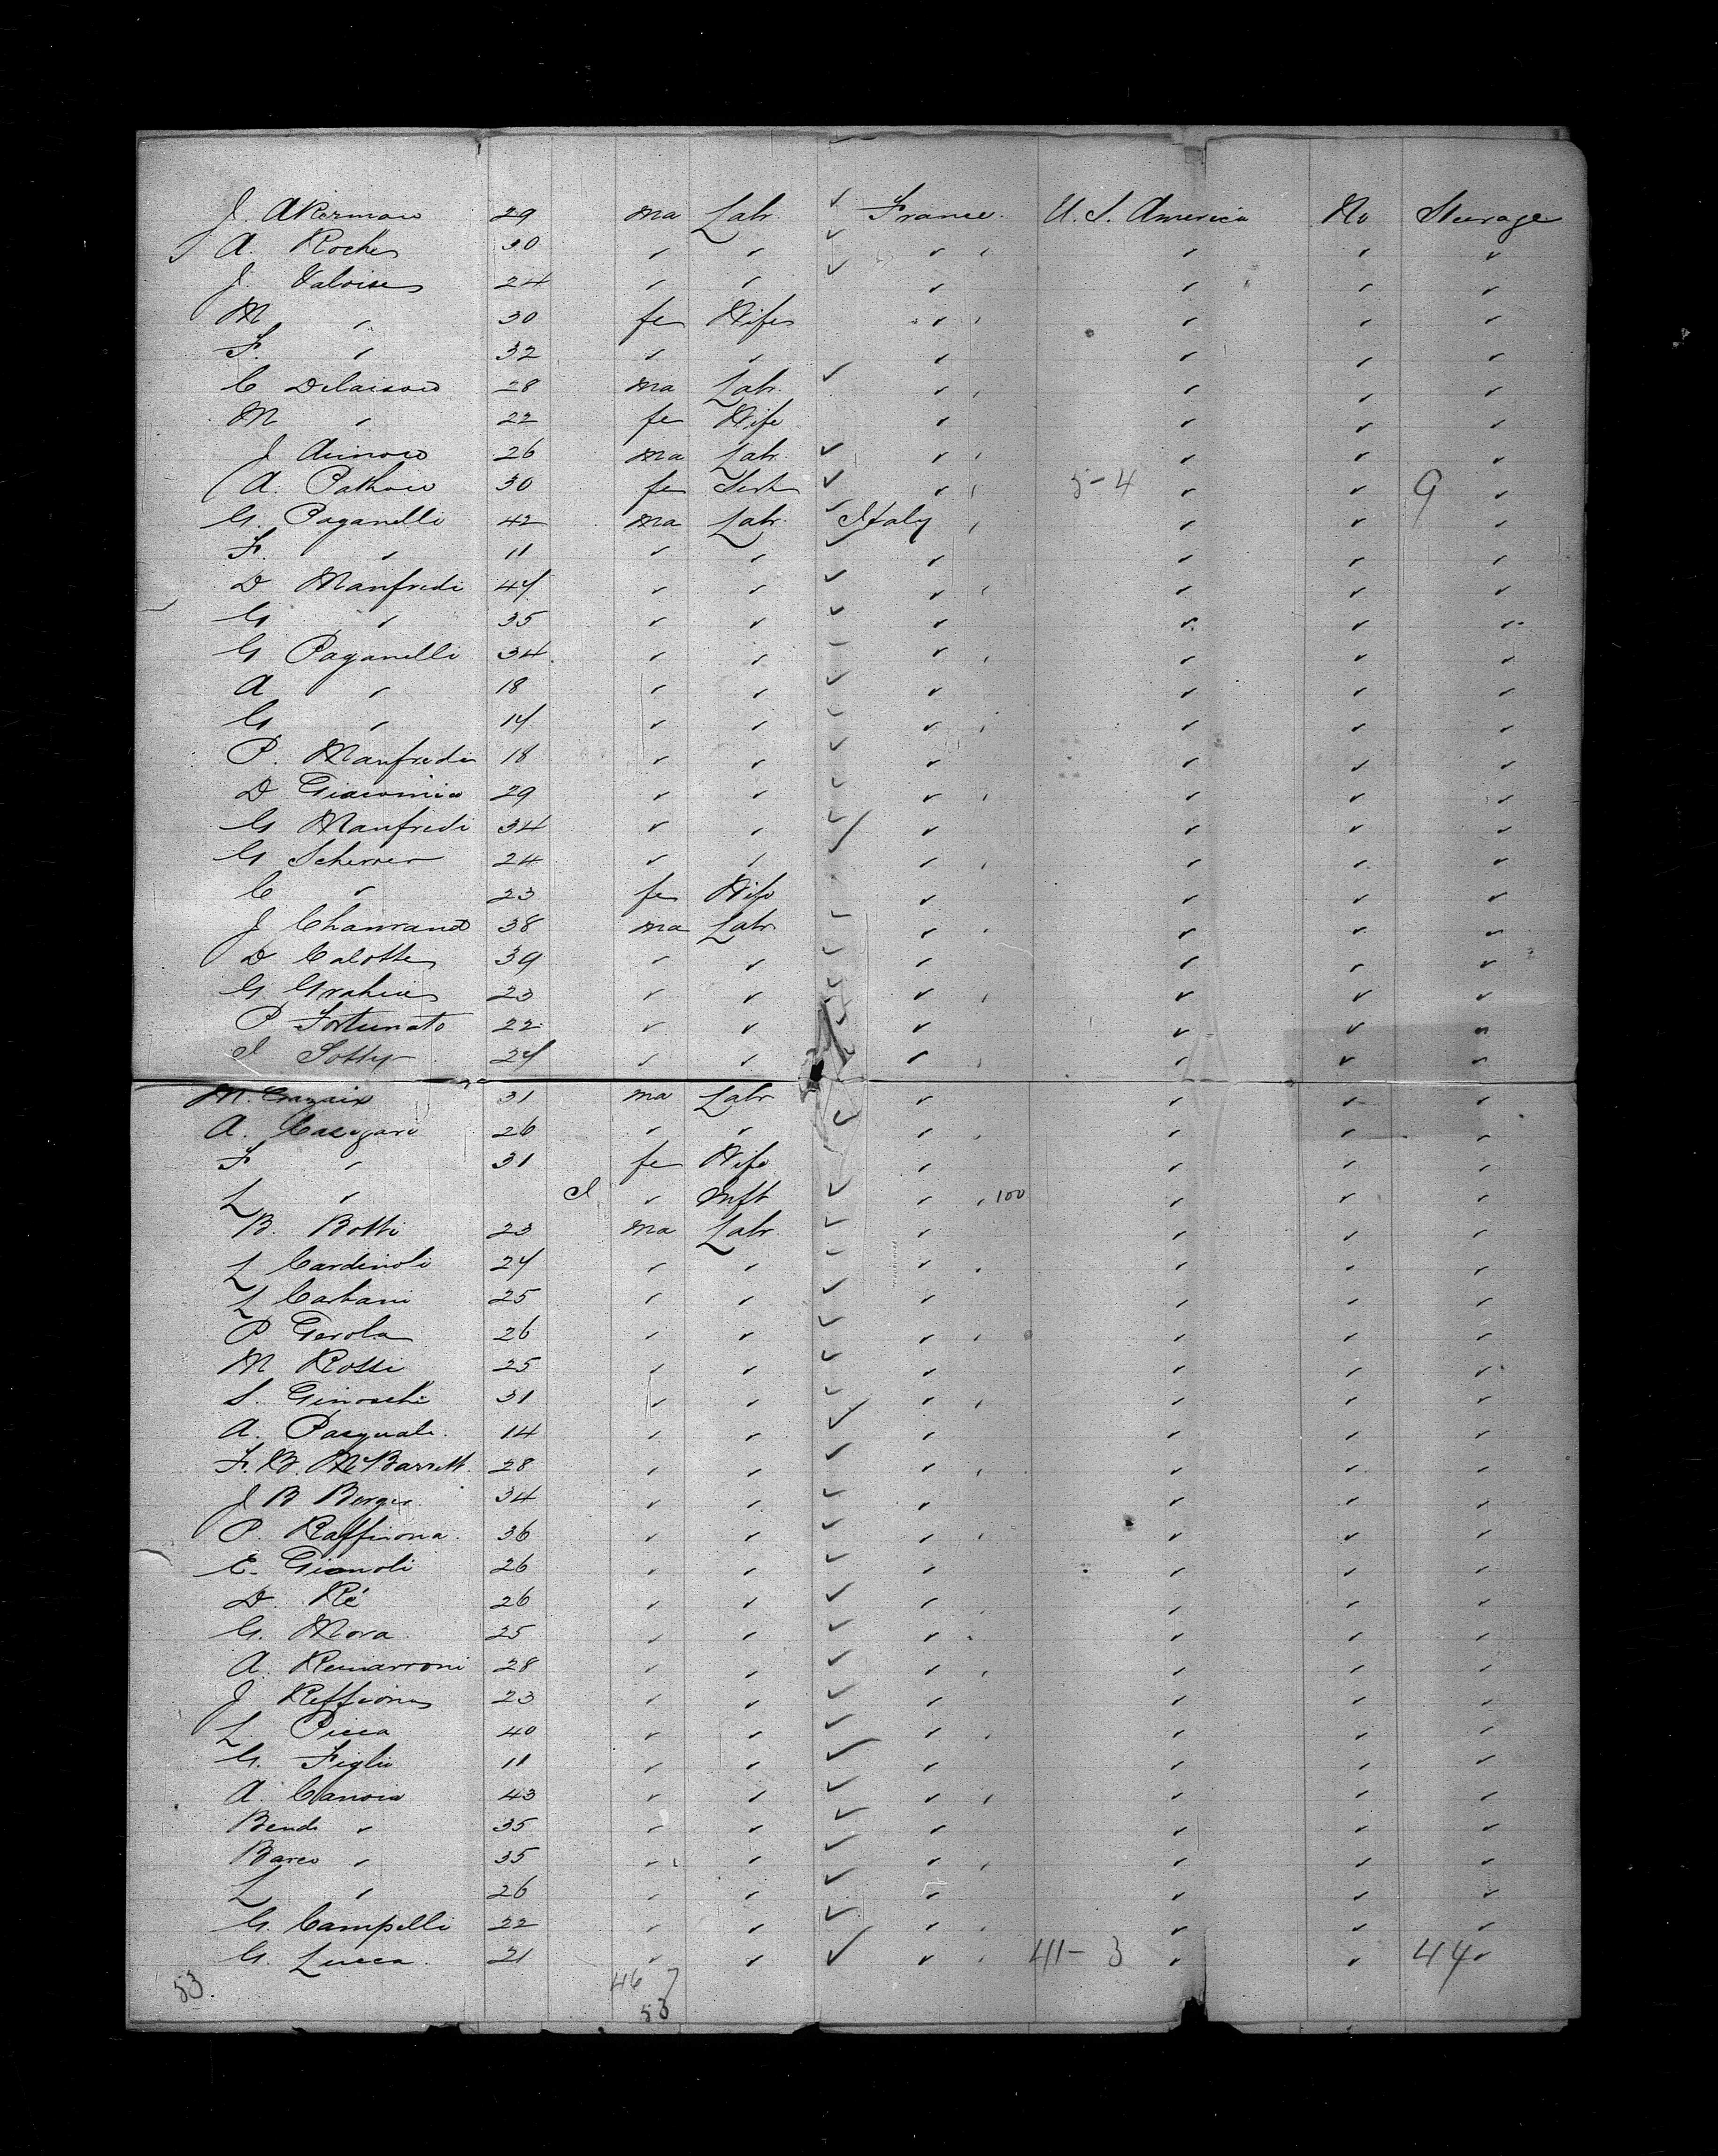 J. Akerman 29 ma Labr. ✓ France. U. S. America No Steerage
A. Roche 30 " " ✓ " " " "
J. Valoise 24 " " ✓ " " " "
M " 30 fe Wife " " " "
F. " 32 " " " " " "
C 28 ma Labr. ✓ " " " "
M " 22 fe Wife " " " "
J 26 ma Labr. ✓ " " " "
A. 30 fe ✓ " 5-4 " " 9 "
G. Paganelli 42 ma Labr. ✓ Italy " " "
F. " 11 " " ✓ " " " "
D Manfredi 47 " " ✓ " " " "
G " 35 " " ✓ " " " "
G Paganelli 34 " " ✓ " " " "
A " 18 " " ✓ " " " "
G " 14 " " ✓ " " " "
P. Manfredi 18 " " ✓ " " " "
D Giacomin 29 " " ✓ " " " "
G Manfredi 34 " " ✓ " " " "
G Scherrer 24 " " ✓ " " " "
C " 23 fe Wife " " " "
J Chanrand 38 ma Labr ✓ " " " "
D Calotte 39 " " ✓ " " " "
G. 23 " " ✓ " " " "
P Fortunato 22 " " ✓ " " " "
J Sotty 24 " " ✓ " " " "
M. 31 ma Labr ✓ " " " "
A. 26 " " ✓ " " " "
F " 31 fe Wife " " " "
L " " Inft ✓ " 100 " " "
B. Botti 23 ma Labr ✓ " " " "
L Cardinoli 24 " " ✓ " " " "
L Carbani 25 " " ✓ " " " "
P Gerola 26 " " ✓ " " " "
M Rossi 25 " " ✓ " " " "
S. Ginoschi 31 " " ✓ " " " "
A. Pasquale. 14 " " ✓ " " " "
F. B. McBarrett. 28 " " ✓ " " " "
J B Berger 34 " " ✓ " " " "
P. Raffiiona. 36 " " ✓ " " " "
E. Gianoli 26 " " ✓ " " " "
D. Ré 26 " " ✓ " " " "
G. Mora 25 " " ✓ " " " "
A. 28 " " ✓ " " " "
J Reffiona 23 " " ✓ " " " "
L. Picca 40 " " ✓ " " " "
G. Figlio 11 " " ✓ " " " "
A. Canova 43 " " ✓ " " " "
Bend " 35 " " ✓ " " " "
Barco " 35 " " ✓ " " " "
L " 26 " " ✓ " " " "
G. Campelli 22 " " ✓ " " " "
G. Lucca. 21 " " ✓ " 41-3 " " 44 "
53. 46 7
53